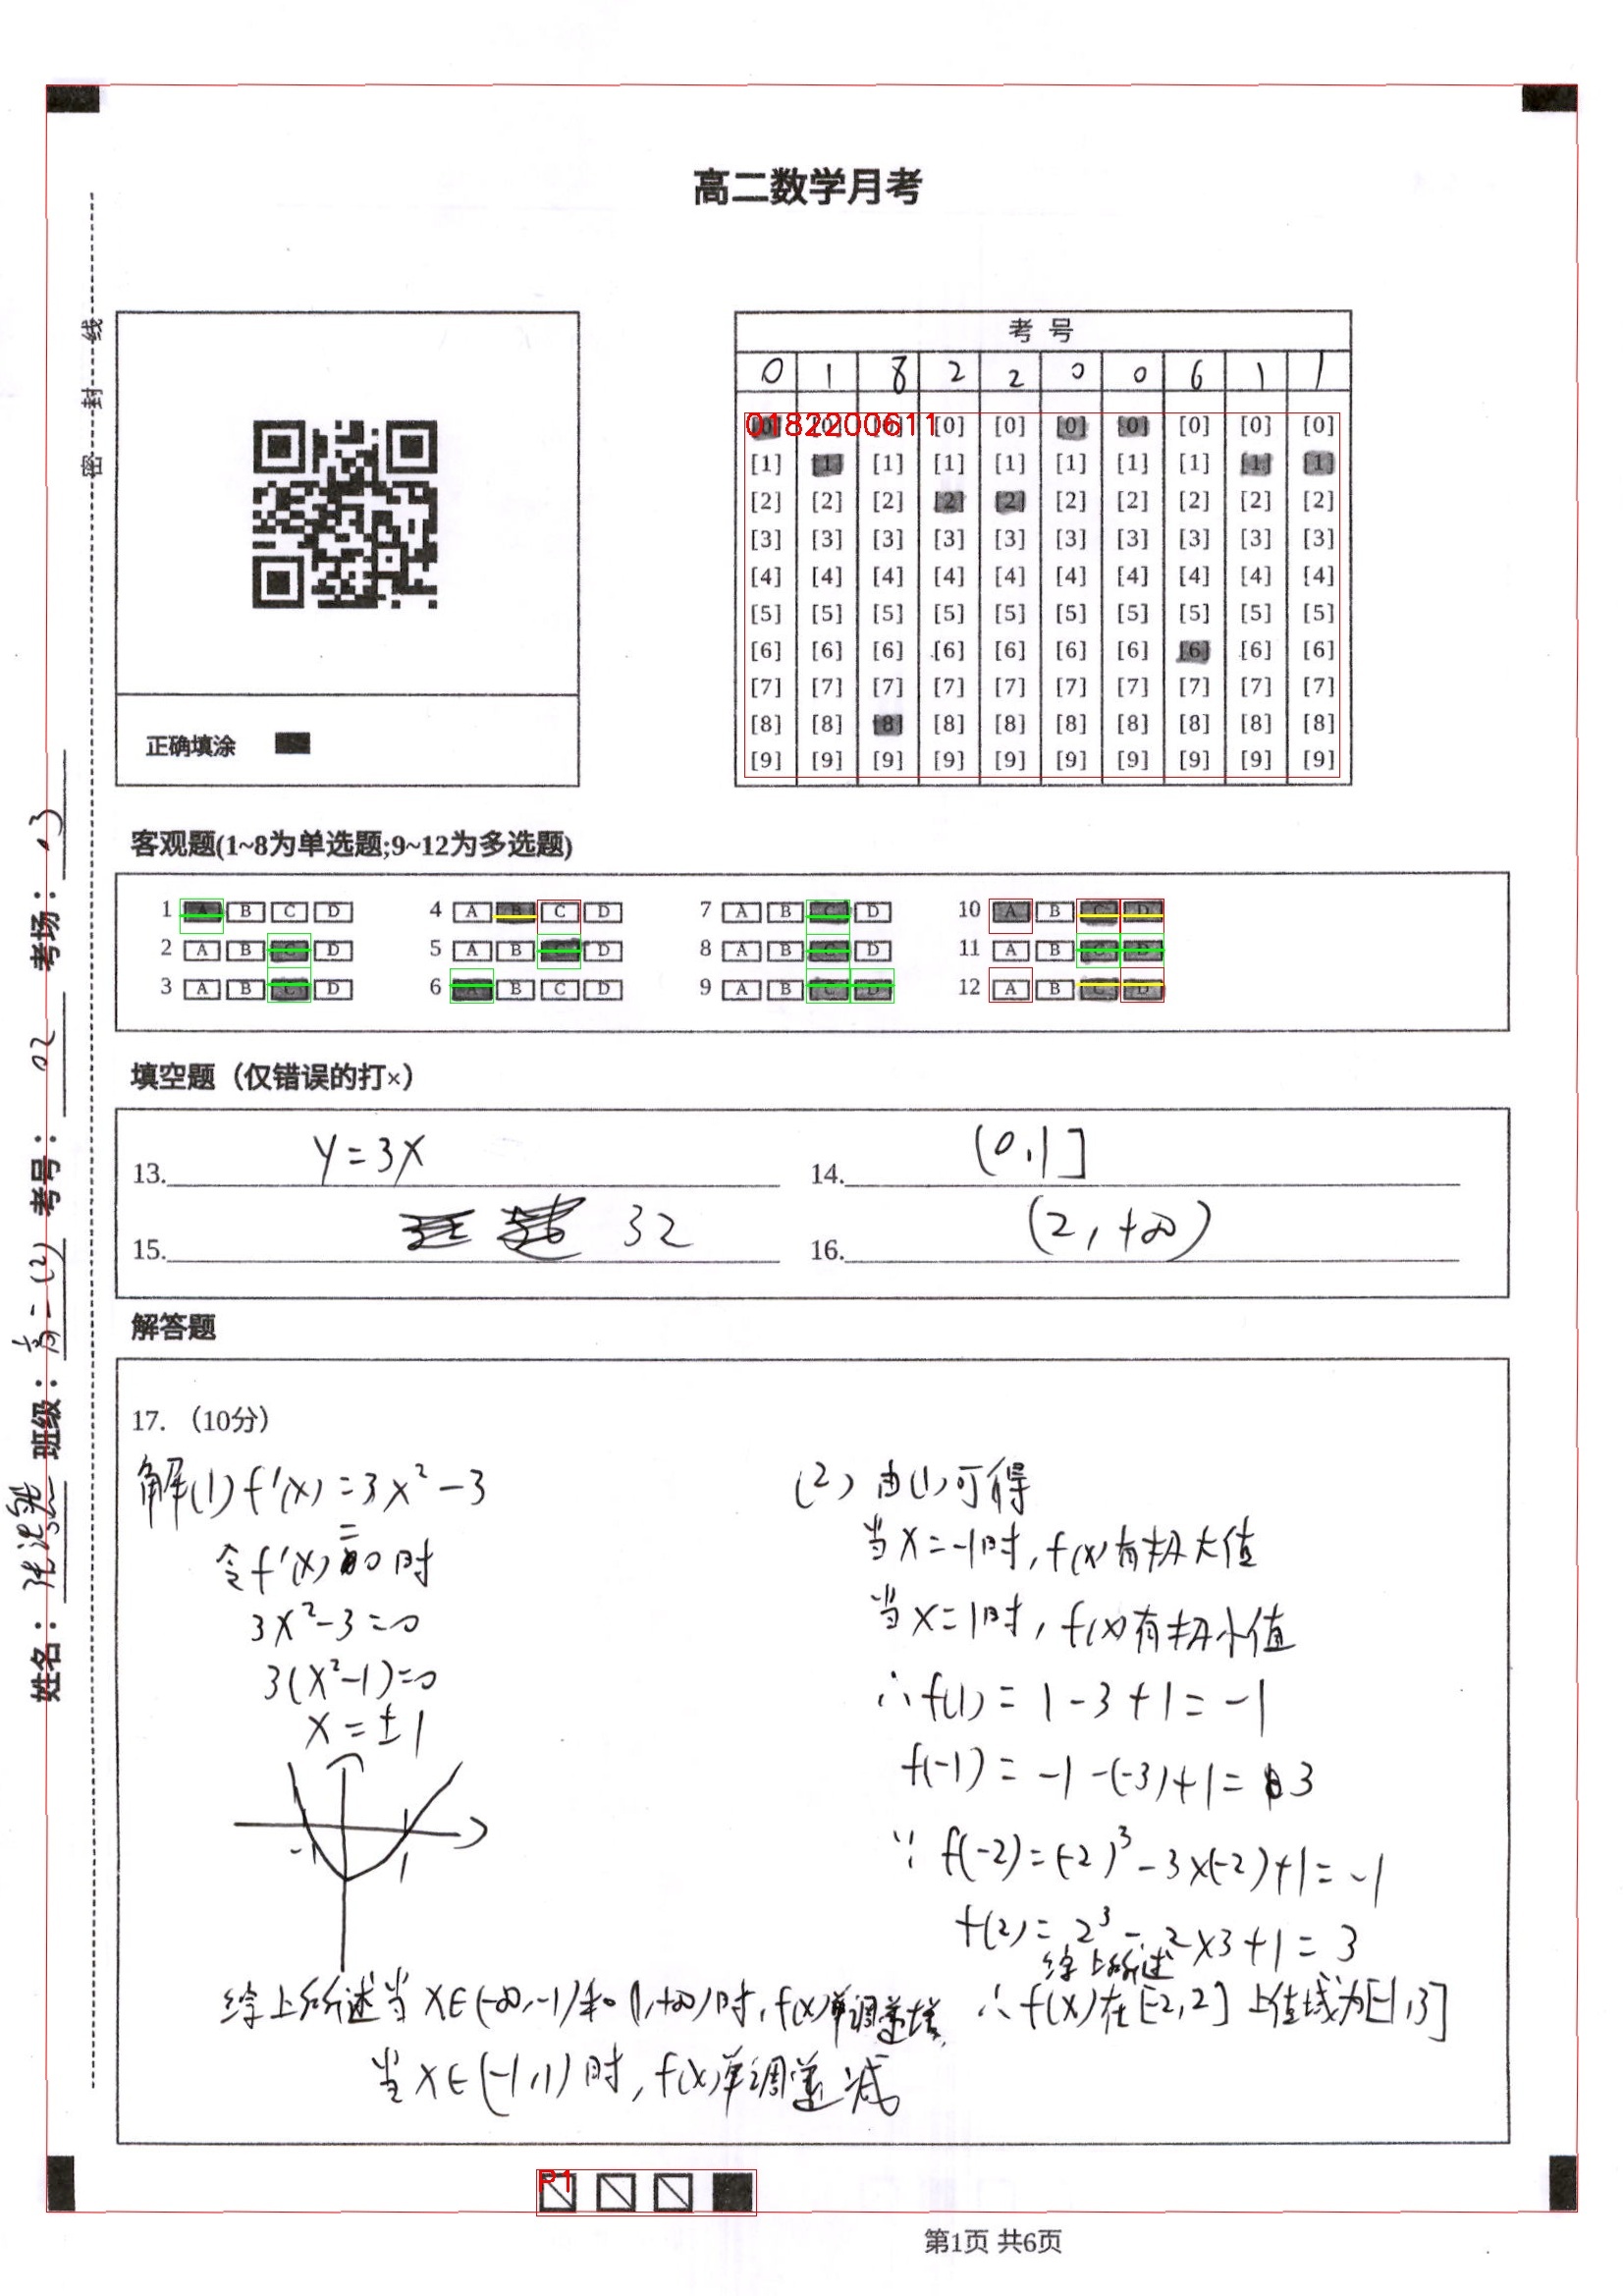 高二数学月考
考 号
0 1 8 2 2 0 0 6 1 1
0182200611
[0] [0] [0] [0] [0] [0] [0] [0] [0] [0]
[1] [1] [1] [1] [1] [1] [1] [1] [1] [1]
[2] [2] [2] [2] [2] [2] [2] [2] [2] [2]
[3] [3] [3] [3] [3] [3] [3] [3] [3] [3]
[4] [4] [4] [4] [4] [4] [4] [4] [4] [4]
[5] [5] [5] [5] [5] [5] [5] [5] [5] [5]
[6] [6] [6] [6] [6] [6] [6] [6] [6] [6]
[7] [7] [7] [7] [7] [7] [7] [7] [7] [7]
[8] [8] [8] [8] [8] [8] [8] [8] [8] [8]
[9] [9] [9] [9] [9] [9] [9] [9] [9] [9]
正确填涂
密 封 线
姓名： 班级：高二(2) 考号：02 考场：03
客观题(1~8为单选题;9~12为多选题)
1 A B C D 4 A B C D 7 A B C D 10 A B C D
2 A B C D 5 A B C D 8 A B C D 11 A B C D
3 A B C D 6 A B C D 9 A B C D 12 A B C D
填空题（仅错误的打×）
13. y=3x 14. (0,1]
15. 32 16. (2,+∞)
解答题
17.（10分）
解(1) f'(x)=3x²-3
令f'(x)=0时
3x²-3=0
3(x²-1)=0
x=±1
-1 1
综上所述当x∈(-∞,-1)和(1,+∞)时,f(x)单调递增
当x∈(-1,1)时,f(x)单调递减
(2) 由(1)可得
当x=-1时,f(x)有极大值
当x=1时,f(x)有极小值
∴f(1)=1-3+1=-1
f(-1)=-1-(-3)+1=3
∵f(-2)=(-2)³-3x(-2)+1=-1
f(2)=2³-2x3+1=3
综上所述
∴f(x)在[-2,2]上值域为[-1,3]
P1
第1页 共6页